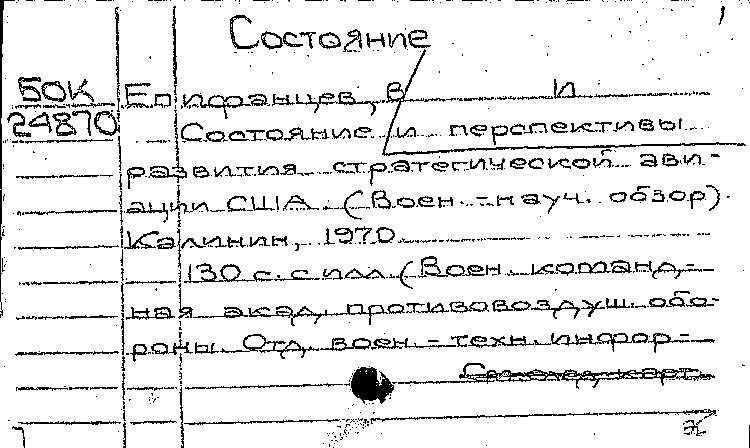 Состояние
50К Епифанцев, В И
24870 Состояние и перспективы
развития стратегической ави-
ации США. (Воен.-науч. обзор).
Калинин, 1970.
130 с. с илл. (Воен. команд,-
ная акад. противовоздуш. обо-
роны. Отд. воен.-техн. инфор-
См. след. карт.
ж